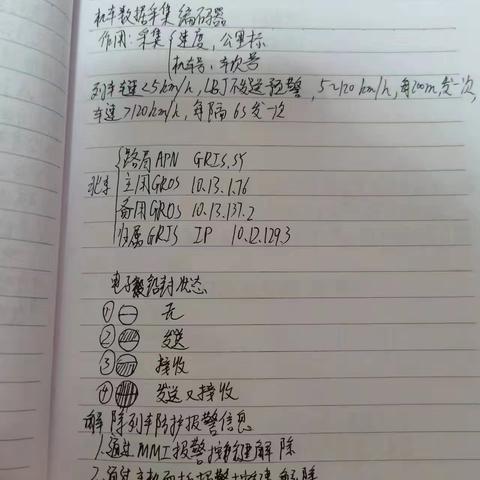 机车数据采集编码器
作用:采集{速度,公里标
机车号、车次号
列车车速<5km/h,LBJ不发送预警,5~120km/h,每200m,发一次,
车速>120km/h,每隔6S发一次
北京{路局APN GRIS.SY
主用GROS 10.13.1.76
备用GROS 10.13.137.2
归属GRIS IP 10.12.129.3
电子铅封状态
① 无
② 发送
③ 接收
④ 发送又接收
解除列车防护报警信息
1.通过MMI报警按键解除
2.通过主机面板报警按键解除